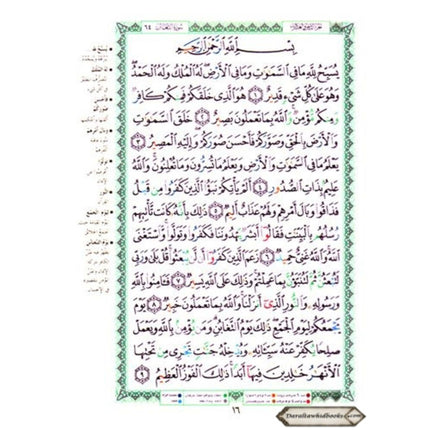 سورة التغابن ٦٤
بِسْمِ اللَّهِ الرَّحْمَٰنِ الرَّحِيمِ
يُسَبِّحُ لِلَّهِ مَا فِي السَّمَاوَاتِ وَمَا فِي الْأَرْضِ لَهُ الْمُلْكُ وَلَهُ الْحَمْدُ
وَهُوَ عَلَىٰ كُلِّ شَيْءٍ قَدِيرٌ ١ هُوَ الَّذِي خَلَقَكُمْ فَمِنكُمْ كَافِرٌ
وَمِنكُم مُّؤْمِنٌ وَاللَّهُ بِمَا تَعْمَلُونَ بَصِيرٌ ٢ خَلَقَ السَّمَاوَاتِ
وَالْأَرْضَ بِالْحَقِّ وَصَوَّرَكُمْ فَأَحْسَنَ صُوَرَكُمْ وَإِلَيْهِ الْمَصِيرُ ٣
يَعْلَمُ مَا فِي السَّمَاوَاتِ وَالْأَرْضِ وَيَعْلَمُ مَا تُسِرُّونَ وَمَا تُعْلِنُونَ وَاللَّهُ
عَلِيمٌ بِذَاتِ الصُّدُورِ ٤ أَلَمْ يَأْتِكُمْ نَبَأُ الَّذِينَ كَفَرُوا مِن قَبْلُ
فَذَاقُوا وَبَالَ أَمْرِهِمْ وَلَهُمْ عَذَابٌ أَلِيمٌ ٥ ذَٰلِكَ بِأَنَّهُ كَانَت تَّأْتِيهِمْ
رُسُلُهُم بِالْبَيِّنَاتِ فَقَالُوا أَبَشَرٌ يَهْدُونَنَا فَكَفَرُوا وَتَوَلَّوا وَّاسْتَغْنَى
اللَّهُ وَاللَّهُ غَنِيٌّ حَمِيدٌ ٦ زَعَمَ الَّذِينَ كَفَرُوا أَن لَّن يُبْعَثُوا قُلْ بَلَىٰ وَرَبِّي
لَتُبْعَثُنَّ ثُمَّ لَتُنَبَّؤُنَّ بِمَا عَمِلْتُمْ وَذَٰلِكَ عَلَى اللَّهِ يَسِيرٌ ٧ فَآمِنُوا بِاللَّهِ
وَرَسُولِهِ وَالنُّورِ الَّذِي أَنزَلْنَا وَاللَّهُ بِمَا تَعْمَلُونَ خَبِيرٌ ٨ يَوْمَ
يَجْمَعُكُمْ لِيَوْمِ الْجَمْعِ ذَٰلِكَ يَوْمُ التَّغَابُنِ وَمَن يُؤْمِن بِاللَّهِ وَيَعْمَلْ
صَالِحًا يُكَفِّرْ عَنْهُ سَيِّئَاتِهِ وَيُدْخِلْهُ جَنَّاتٍ تَجْرِي مِن تَحْتِهَا
الْأَنْهَارُ خَالِدِينَ فِيهَا أَبَدًا ذَٰلِكَ الْفَوْزُ الْعَظِيمُ ٩
١٦
Daraltawhidbooks.com